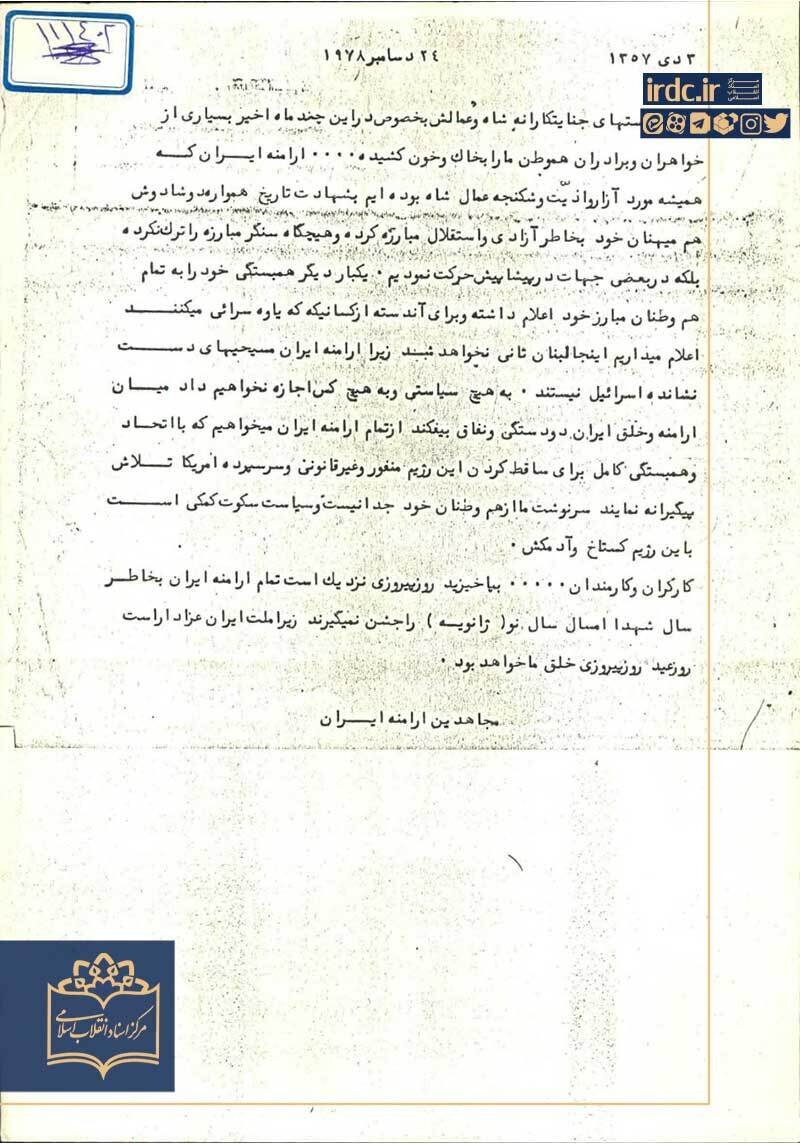 ۱۱۱۴۰۲
۳ دی ۱۳۵۷
۲۴ دسامبر ۱۹۷۸
irdc.ir
مرکز اسناد انقلاب اسلامی
جنایتکارانه شاه و عمالش بخصوص در این چند ماه اخیر بسیاری از
خواهران و برادران هموطن ما را بخاک و خون کشیده ۰۰۰۰ ارامنه ایران که
همیشه مورد آزار و اذیّت و شکنجه عمال شاه بوده ایم بشهادت تاریخ همواره دوشادوش
هم میهنان خود بخاطر آزادی و استقلال مبارزه کرده و هیچگاه سنگر مبارزه را ترک نکرده
بلکه در بعضی جهات در پیشاپیش حرکت نمودیم ۰ یکبار دیگر همبستگی خود را به تمام
هم وطنان مبارز خود اعلام داشته و برای آندسته از کسانیکه که یاوه سرائی میکنند
اعلام میداریم اینجا لبنان ثانی نخواهد شد زیرا ارامنه ایران مسیحیهای دست
نشانده اسرائیل نیستند ۰ به هیچ سیاستی و به هیچ کس اجازه نخواهیم داد میان
ارامنه و خلق ایران دو دستگی و نفاق بیفکند از تمام ارامنه ایران میخواهیم که با اتحاد
و همبستگی کامل برای ساقط کردن این رژیم منفور و غیرقانونی و سرسپرده امریکا تلاش
پیگیرانه نمایند سرنوشت ما از هم وطنان خود جدا نیست و سیاست سکوت کمکی است
با این رژیم گستاخ و آدمکش ۰
کارگران و کارمندان ۰۰۰۰۰ بپاخیزید روز پیروزی نزدیک است تمام ارامنه ایران بخاطر
سال شهدا امسال سال نو ( ژانویه ) را جشن نمیگیرند زیرا ملت ایران عزادار است
روز عید روز پیروزی خلق ما خواهد بود ۰
مجاهدین ارامنه ایران
مرکز اسناد انقلاب اسلامی